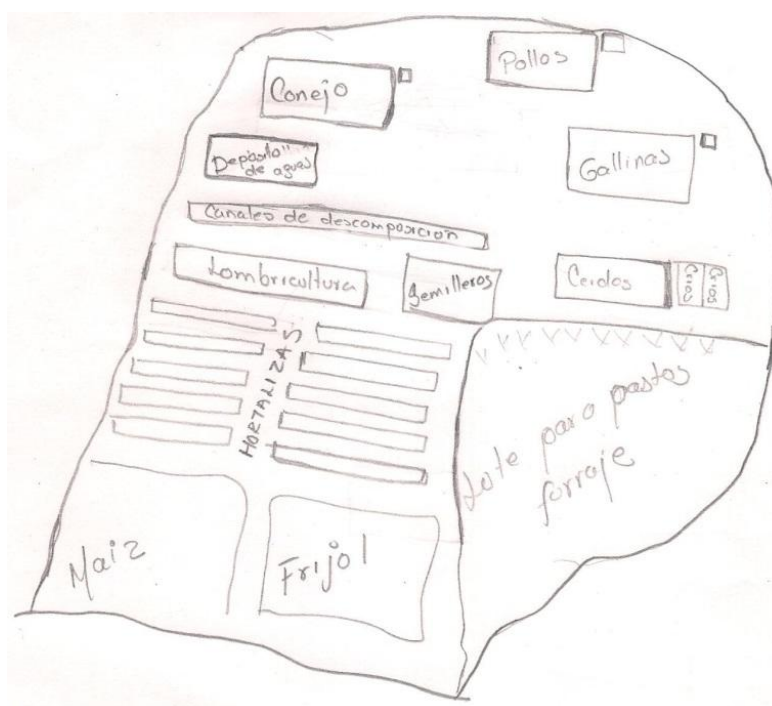 Pollos
Conejo
Gallinas
Depósito
de aguas
Canales de descomposición
Lombricultura
Semilleros
Cerdos
Crias
Crias
HORTALIZAS
Lote para pastos
forraje
Maiz
Frijol